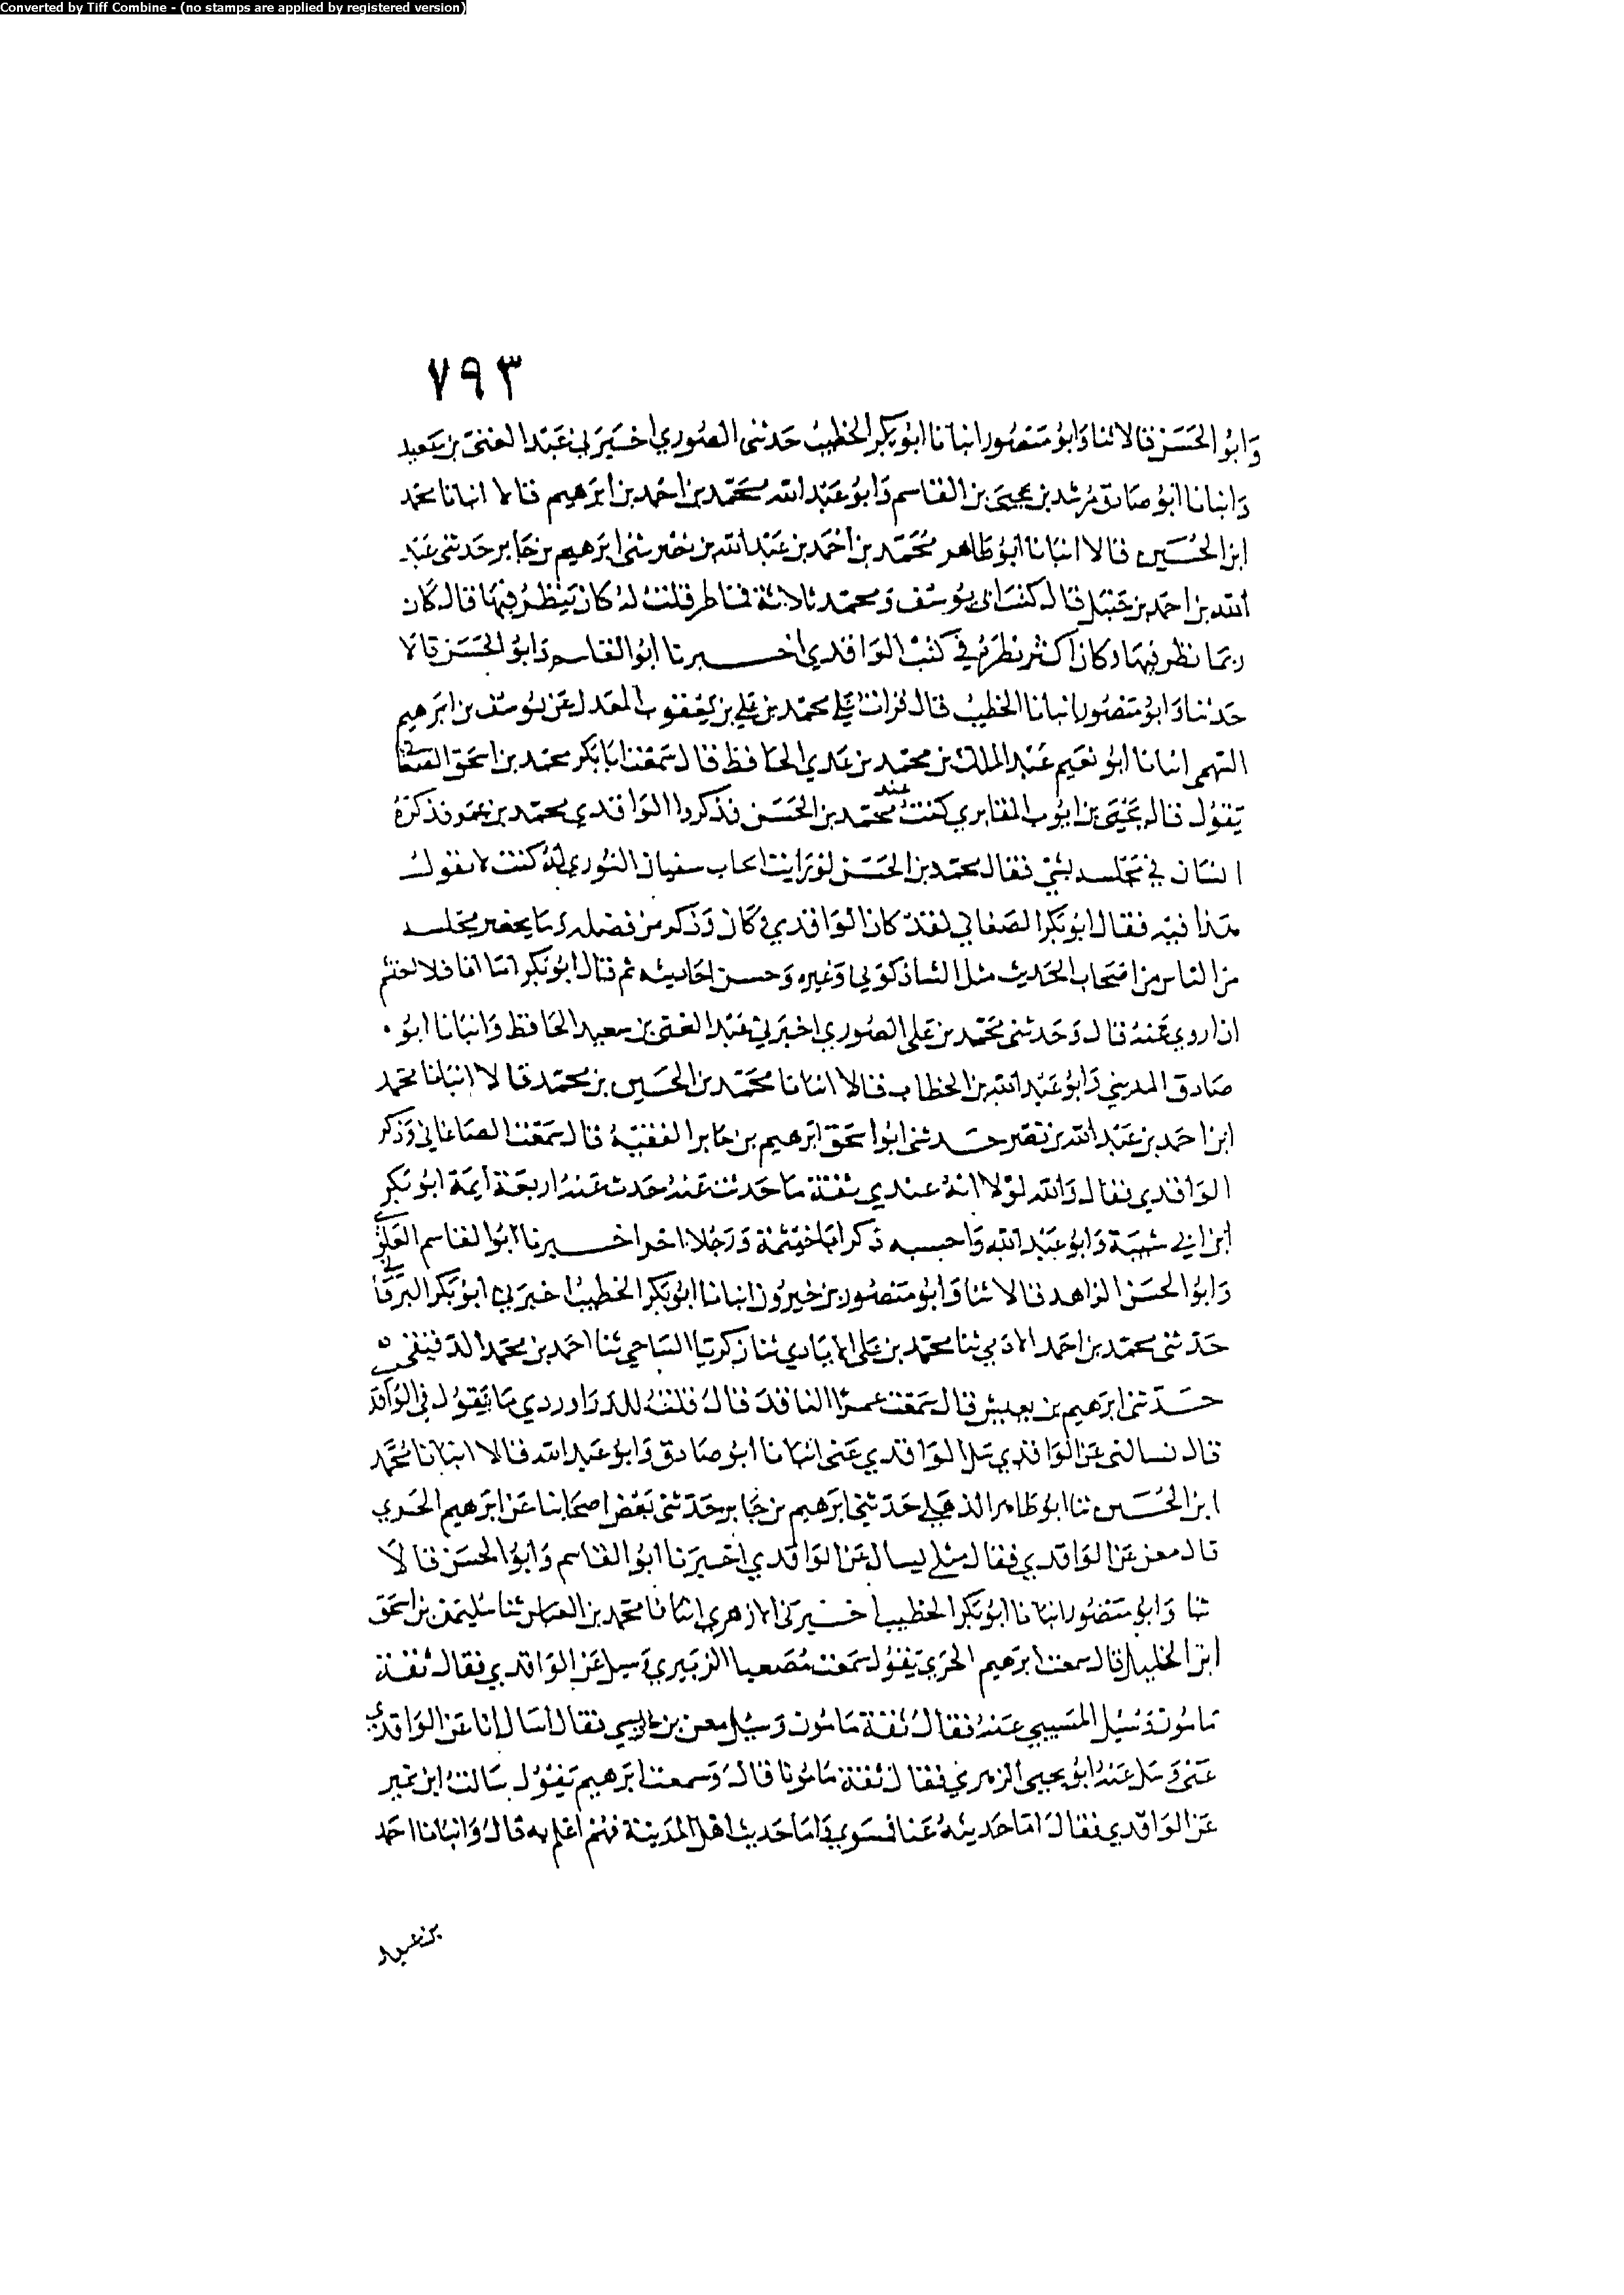 Converted by Tiff Combine - (no stamps are applied by registered version)
٧٩٣
وابو الحسن قالا ثنا وابو منصور انبانا ابو بكر الخطيب حدثنى الصوري اخبرني عبد الغنى بن سعيد
وانبانا ابو صادق مرشد بن يحيى بن القاسم وابو عبد الله محمد بن احمد بن ابرهيم قالا انبانا محمد
ابن الحسين قالا انبانا ابو طاهر محمد بن احمد بن عبد الله بن نصر ثنى ابرهيم بن جابر حدثنى عبد
الله بن احمد بن حنبل قال كتب ابي يوسف ومحمد ثلاثة قماطر قلت له كان ينظر فيها قال كان
ربما نظر فيها وكان اكثر نظره في كتب الواقدي اخبرنا ابو القاسم وابو الحسن قالا
حدثنا وابو منصور انبانا الخطيب قال قرات على محمد بن علي بن يعقوب المعدل عن يوسف بن ابرهيم
السهمي انبانا ابو نعيم عبد الملك بن محمد بن عدي الحافظ قال سمعت ابا بكر محمد بن اسحق الصغاني
يقول قال يحيى بن ايوب المقابري كنت عند محمد بن الحسن فذكروا الواقدي محمد بن عمر فذكره
انسان في مجلسه بشي فقال محمد بن الحسن لو رايت اصحاب سفيان الثوري كنت لا تقول
هذا فيه فقال ابو بكر الصغاني لقد كان الواقدي وكان وذكر من فضله وما يحضر مجلسه
من الناس من اصحاب الحديث مثل الشاذكوني وغيره وحسن احاديثه ثم قال ابو بكر اما انا فلا احتشم
ان اروي عنه قال وحدثنى محمد بن على الصوري اخبرني عبد الغنى بن سعيد الحافظ وانبانا ابو
صادق المديني وابو عبد الله بن الحطاب قالا انبانا محمد بن الحسين بن محمد قالا انبانا محمد
ابن احمد بن عبد الله بن نصر حدثنى ابو اسحق ابرهيم بن جابر الفقيه قال سمعت الصاغاني وذكر
الواقدي فقال والله لولا انه عندي ثقة ما حدثت عنه حدث عنه اربعة ايمة ابو بكر
ابن ابي شيبة وابو عبد الله واحسبه ذكر ابا خيثمة ورجلا اخر اخبرنا ابو القاسم العلوي
وابو الحسن الزاهد قالا ثنا وابو منصور بن خيرون انبانا ابو بكر الخطيب اخبرني ابو بكر البرقاني
حدثنى محمد بن احمد الادمي ثنا محمد بن على الايادي ثنا زكريا الساجي ثنا احمد بن محمد
حدثنى ابرهيم بن قال سمعت عمرا الناقد قال قلت للدراوردي ما يقول في الواقدي
قال تسالنى عن الواقدي سل الواقدي عنى انبانا ابو صادق وابو عبد الله قالا انبانا محمد
ابن الحسين ثنا ابو طاهر الذهلي حدثني ابرهيم بن جابر حدثنى بعض اصحابنا عن ابرهيم الحربي
قال معن عن الواقدي فقال مثلي يسال عن الواقدي اخبرنا ابو القاسم وابو الحسن قالا
ثنا وابو منصور انبانا ابو بكر الخطيب اخبرنى الازهري انبانا محمد بن العباس ثنا سليمن بن اسحق
ابن الخليل قال سمعت ابرهيم الحربي يقول سمعت مصعبا الزبيري وسيل عن الواقدي فقال ثقة
مامون وسيل المسيبي عنه فقال ثقة مامون وسيل معن بن عيسي فقال اسال انا عن الواقدي
عنى وسل عنه ابو يحيى الزهري فقال ثقة مامونا قال وسمعت ابرهيم يقول سالت ابن نمير
عن الواقدي فقال اما حديثه عنا فسوي واما حديث اهل المدينة فهم اعلم به قال وانبانا احمد